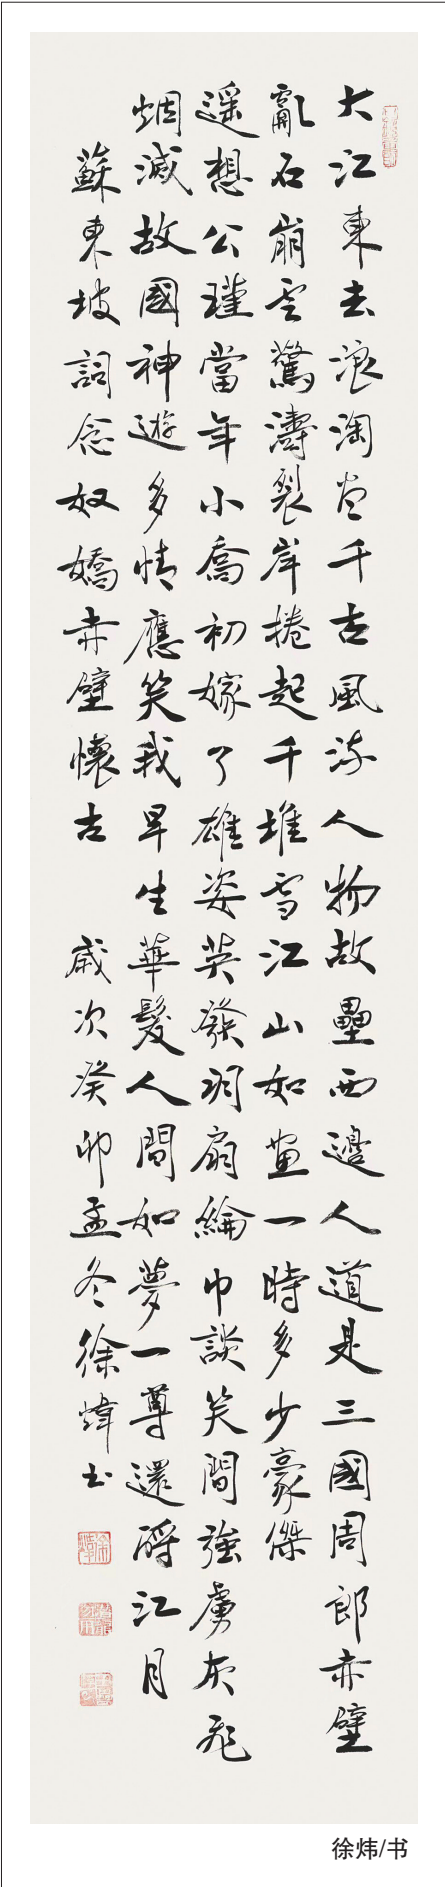 大江東去浪淘盡千古風流人物故壘西邊人道是三國周郎赤壁
亂石崩雲驚濤裂岸捲起千堆雪江山如畫一時多少豪傑
遥想公瑾當年小喬初嫁了雄姿英發羽扇綸巾談笑間強虜灰飛
烟滅故國神遊多情應笑我早生華髮人間如夢一尊還酹江月
蘇東坡詞念奴嬌赤壁懷古 歲次癸卯孟冬徐煒書
徐炜/书